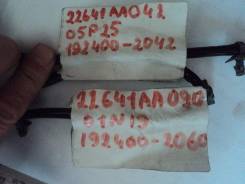 22641AA042
05P25
192400-2042
22641AA090
01N19
192400-2060